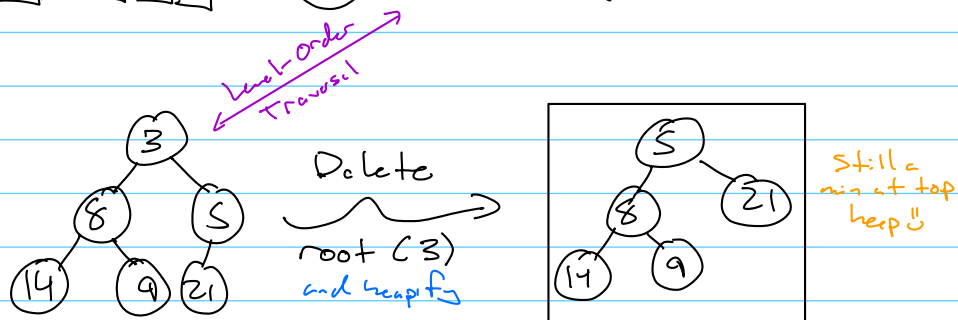 Level-Order
Traversal
3
8 5
14 9 21
Delete
root (3)
and heapify
5
8 21
14 9
Still a
min at top
heap